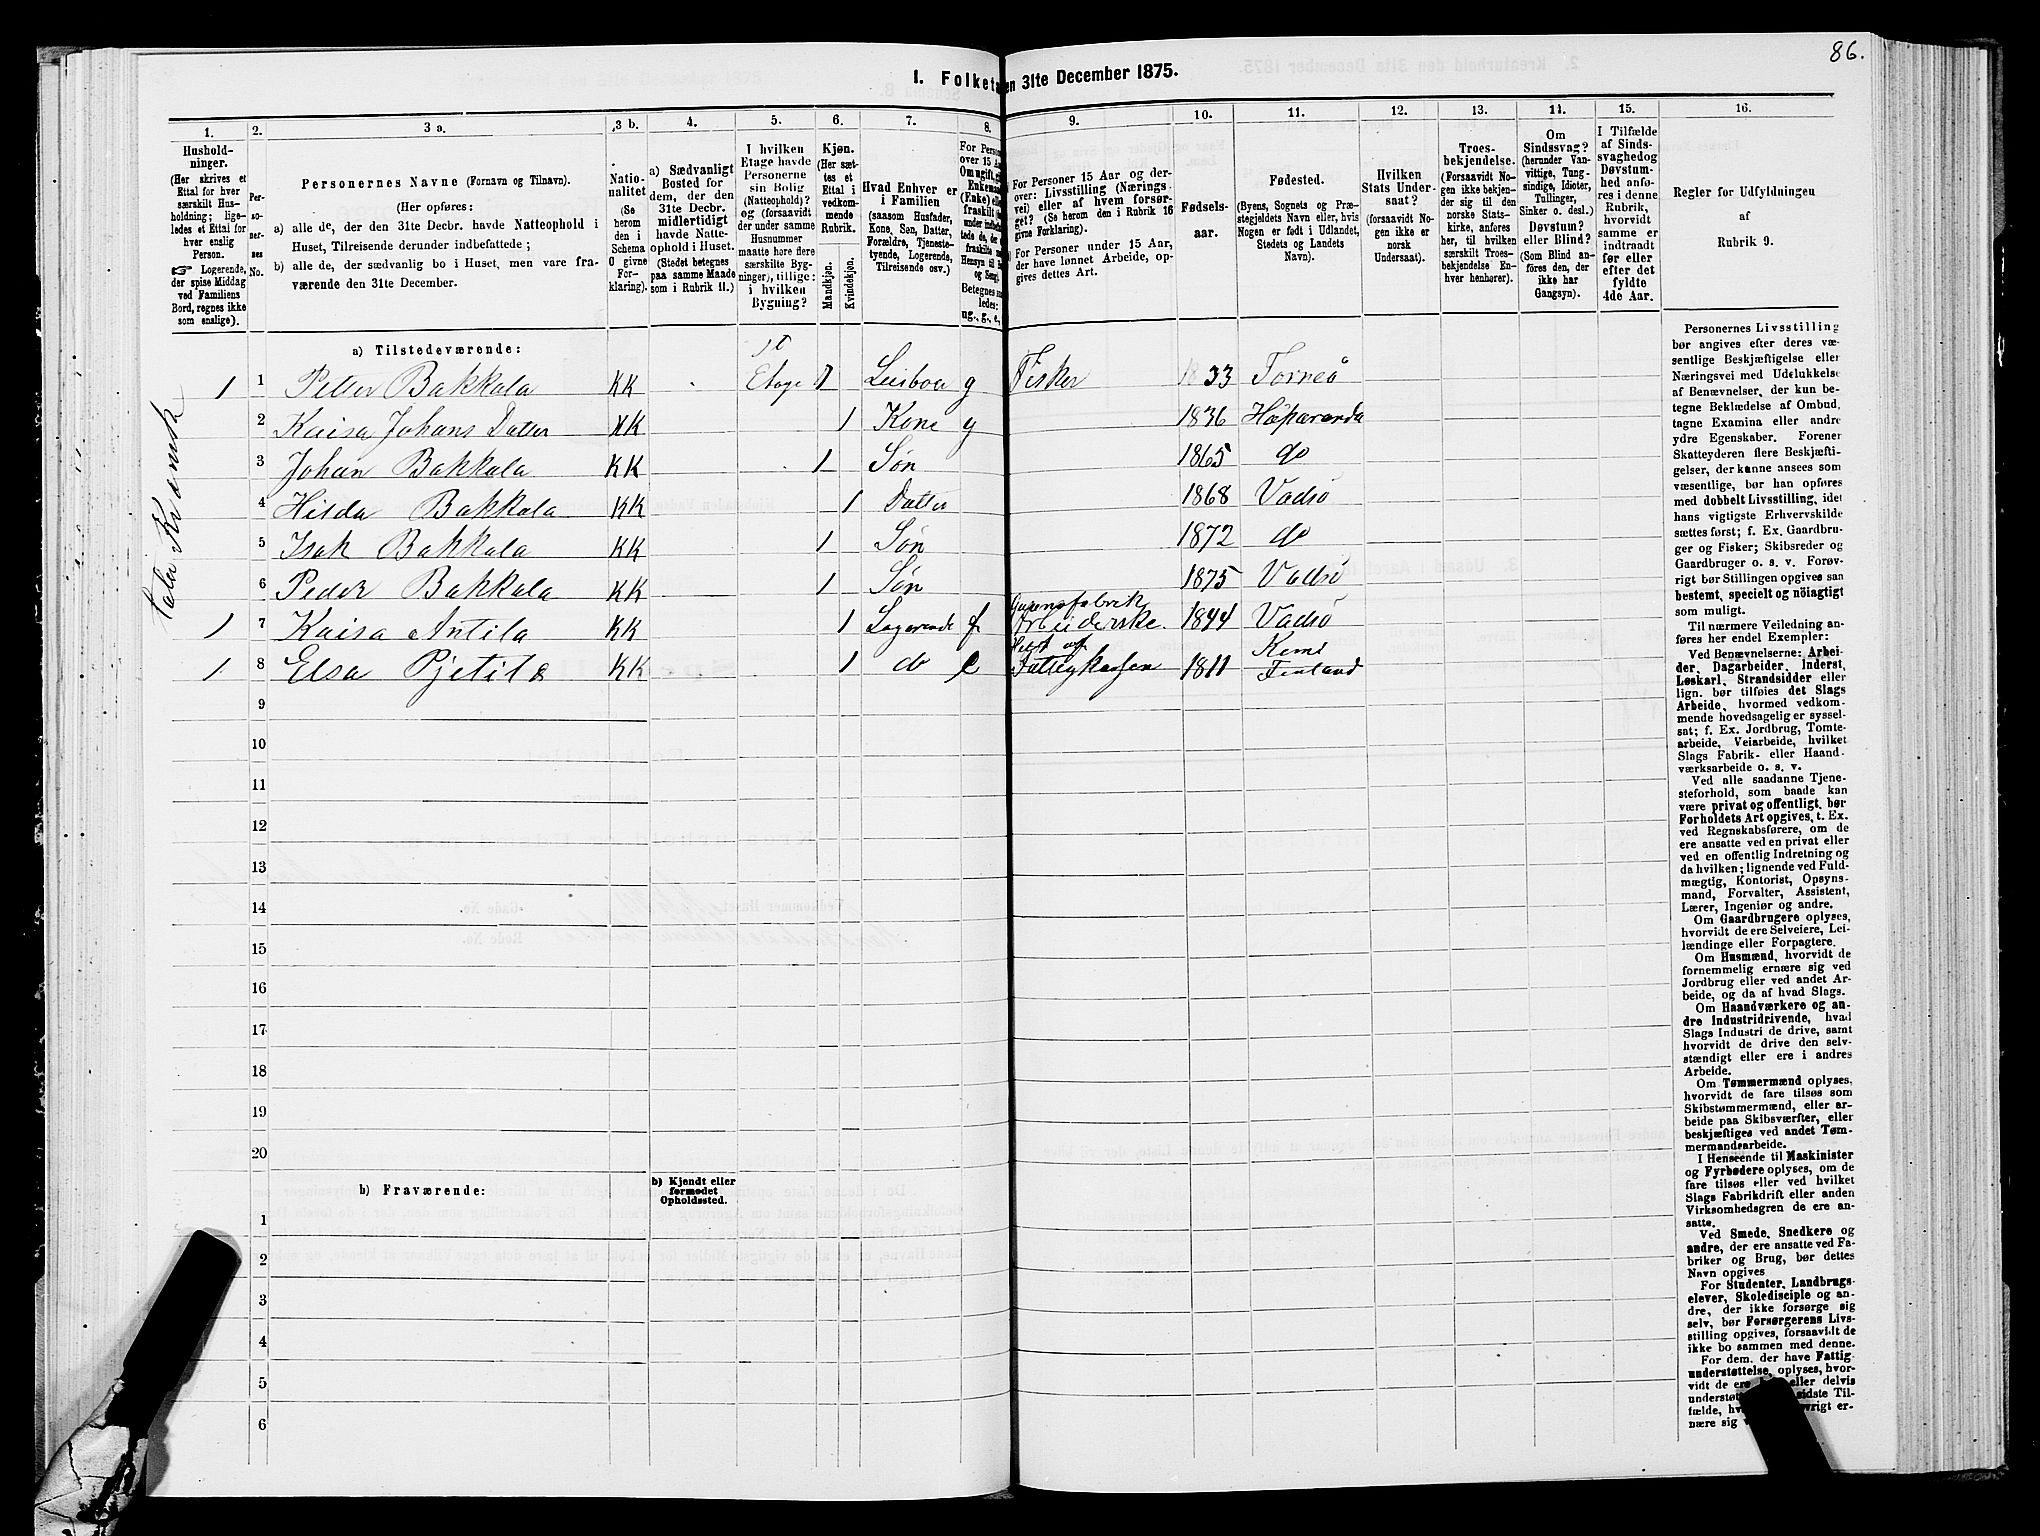 86.
I. Folketa en 31te December 1875.
1. 2. 3 a. 3 b. 4. 5. 6. 7. 8. 9. 10. 11. 12. 13. 14. 15. 16.
Hushold-
ninger.
(Her skrives et
Ettal for hver
særskilt Hus-
holdning; lige-
ledes et Ettal for
hver enslig
Person.
☞ Logerende,
der spise Middag
ved Familiens
Bord, regnes ikke
som enslige).
Per-
so-
ner-
ses
No.
Personernes Navne (Fornavn og Tilnavn).
(Her opføres:
a) alle de, der den 31te Decbr. havde Natteophold i
Huset, Tilreisende derunder indbefattede;
b) alle de, der sædvanlig bo i Huset, men vare fra-
værende den 31te December.
Natio-
nalitet
(Se
herom
den i
Schema
O givne
For-
klaring).
a) Sædvanligt
Bosted for
dem, der den
31te Decbr.
midlertidigt
havde Natte-
ophold i Huset.
(Stedet betegnes
paa samme Maade
som i Rubrik 11.)
I hvilken
Etage havde
Personerne
sin Bolig
(Natteophold)?
og (forsaavidt
der under samme
Husnummer
maatte høre flere
særskilte Byg-
ninger), tillige:
i hvilken
Bygning?
Kjøn.
(Her sæt-
tes et
Ettal i
vedkom-
mende
Rubrik.)
Mandkjøn.
Kvindekjøn.
Hvad Enhver er
i Familien
(saasom Husfader,
Kone, Søn, Datter,
Forældre, Tjeneste-
tyende, Logerende,
Tilreisende osv.)
For Person
over 15 Aa
Om ugift, gi
Enkema
(Enke) elle
fraskilt
ledes:
ug., g., e.,
For Personer 15 Aar og der-
over: Livsstilling (Nærings-
vei) eller af hvem forsør-
get? (Se herom den i Rubrik 16
givne Forklaring).
For Personer under 15 Aar,
der have lønnet Arbeide, op-
gives dettes Art.
Fødsels-
aar.
Fødested.
(Byens, Sognets og Præ-
stegjeldets Navn eller, hvis
Nogen er født i Udlandet,
Stedets og Landets
Navn).
Hvilken
Stats Under-
saat?
(forsaavidt No-
gen ikke er
norsk
Undersaat).
Troes-
bekjendelse.
(Forsaavidt No-
gen ikke bekjen-
der sig til den
norske Stats-
kirke, anføres
her, til hvilken
særskilt Troes-
bekjendelse En-
hver henhører).
Om
Sindssvag?
(herunder Van-
vittige, Tung-
sindige, Idioter,
Tullinger,
Sinker o. desl.)
Døvstum?
eller Blind?
(Som Blind an-
føres den, der
ikke har
Gangsyn).
I Tilfælde
af Sinds-
svaghedog
Døvstum-
hed anfø-
res i denne
Rubrik,
hvorvidt
samme er
indtraadt
før eller
efter det
fyldte
4de Aar.
Regler for Udfyldningen
af
Rubrik 9.
a) Tilstedeværende:
1 1 Petter Bakkala KK 1t Etage 1 g Fisker 33 Torneå
2 Kaisa Johans Datter KK 1 Kone g 1836 Haparanda
3 Johan Bakkala KK 1 Søn 1865 do
4 Hilda Bakkala KK 1 Datter 1868 Vadsø
5 Isak Bakkala KK 1 Søn 1872 do
6 Peder Bakkala KK 1 Søn 1875 Vadsø
1 7 Kaisa Antila KK 1 Logerende f Arbeiderske. 1844 Vadsø
1 8 Elsa KK 1 do e Fattigkassen 1811 Kemi Finland
9
10
11
12
13
14
15
16
17
18
19
20
b) Fraværende:
b) Kjendt eller
formodet
Opholdssted.
1
2
3
4
5
6
Personernes Livsstilling
bør angives efter deres væ-
sentlige Beskjæftigelse eller
Næringsvei med Udelukkelse
af Benævnelser, der kun be-
tegne Beklædelse af Ombud,
tagne Examina eller andre
ydre Egenskaber. Forener
Skatteyderen flere Beskjæfti-
gelser, der kunne ansees som
væsentlige, bør han opføres
med dobbelt Livsstilling, idet
hans vigtigste Erhvervskilde
sættes først; f. Ex. Gaardbru-
ger og Fisker; Skibsreder og
Gaardbruger o. s. v. Forøv-
rigt bør Stillingen opgives saa
bestemt, specielt og nöiagtigt
som muligt.
Til nærmere Veiledning an-
føres her endel Exempler:
Ved Benævnelserne: Arbei-
der, Dagarbeider, Inderst,
Løskarl, Strandsidder eller
lign. bør tilføies det Slags
Arbeide, hvormed vedkom-
mende hovedsagelig er syssel-
sat; f. Ex. Jordbrug, Tomte-
arbeide, Veiarbeide, hvilket
Slags Fabrik- eller Haand-
værksarbeide o. s. v.
Ved alle saadanne Tjene-
steforhold, som baade kan
være privat og offentligt, bør
Forholdets Art opgives, t. Ex.
ved Regnskabsførere, om de
ere ansatte ved en privat eller
ved en offentlig Indretning og
da hvilken; lignende ved Fuld-
mægtig, Kontorist, Opsyns-
mand, Forvalter, Assistent,
Lærer, Ingeniør og andre.
Om Gaardbrugere oplyses,
hvorvidt de ere Selveiere, Lei-
lændinge eller Forpagtere.
Om Husmænd, hvorvidt de
fornemmelig ernære sig ved
Jordbrug eller ved andet Ar-
beide, og da af hvad Slags.
Om Haandværkere og an-
dre Industridrivende, hvad
Slags Industri de drive, samt
hvorvidt de drive den selv-
stændigt eller ere i andres
Arbeide.
Om Tømmermænd oplyses,
hvorvidt de fare tilsøs som
Skibstømmermænd, eller ar-
beide paa Skibsværfter, eller
beskjæftiges ved andet Tøm-
mermandsarbeide.
I Henseende til Maskinister
og Fyrbødere oplyses, om de
fare tilsøs eller ved hvilket
Slags Fabrikdrift eller anden
Virksomhedsgren de ere an-
satte.
Ved Smede, Snedkere og
andre, der ere ansatte ved Fa-
briker og Brug, bør dettes
Navn opgives
For Studenter, Landbrugs-
elever, Skoledisciple og an-
dre, der ikke forsørge sig
selv, bør Forsørgerens Livs-
stilling opgives, forsaavidt de
ikke bo sammen med denne.
For dem, der have Fattig-
understøttelse, oplyses, hvor-
vidt de ere eller delvis
understøt sidste Til-
fælde, hv vrigt er-
nære sig